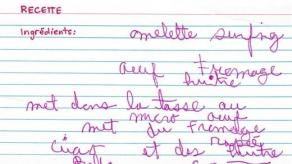 RECETTE
Ingrédients: omelette surfing
oeuf fromage
huitre
met dans la tasse au
micro oeuf
met du fromage
rapée
et des huitre